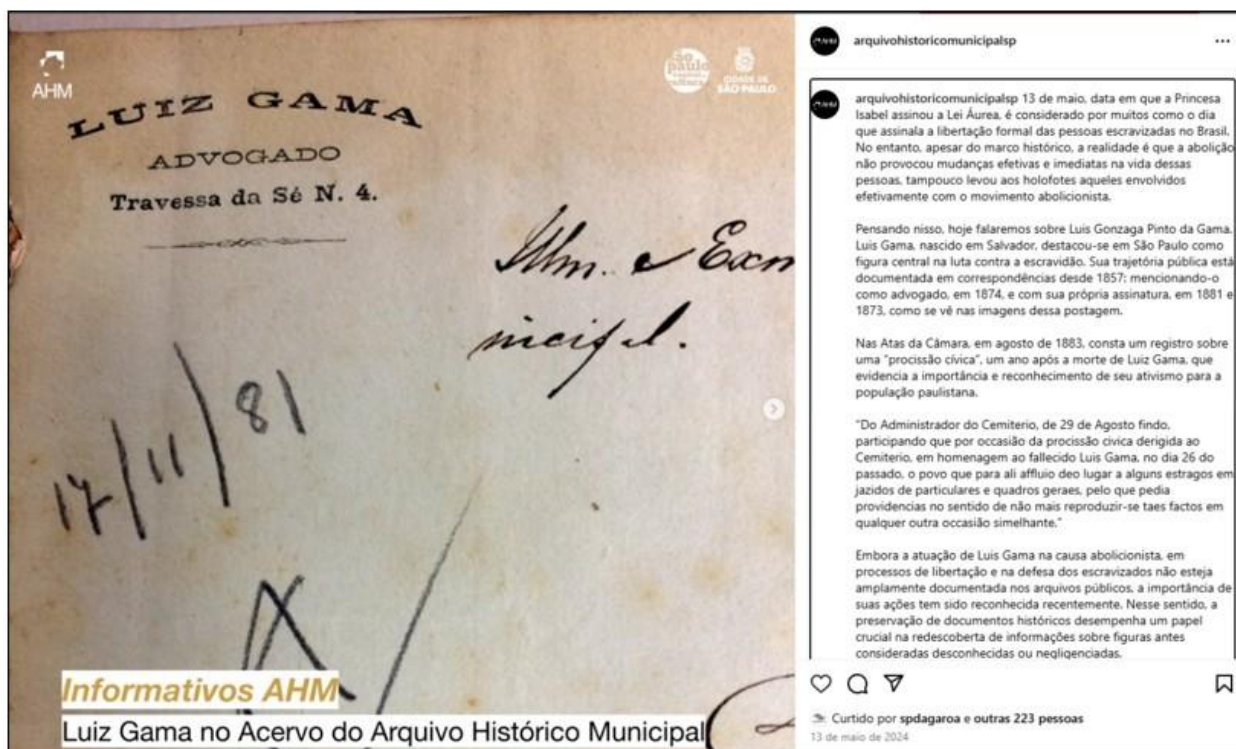 AHM
são paulo
CIDADE DE
SÃO PAULO
LUIZ GAMA
ADVOGADO
Travessa da Sé N. 4.
Illm. e Exm
nicipal.
17/11/81
Informativos AHM
Luiz Gama no Acervo do Arquivo Histórico Municipal
AHM
arquivohistoricomunicipalsp
...
AHM
arquivohistoricomunicipalsp 13 de maio, data em que a Princesa
Isabel assinou a Lei Áurea, é considerado por muitos como o dia
que assinala a libertação formal das pessoas escravizadas no Brasil.
No entanto, apesar do marco histórico, a realidade é que a abolição
não provocou mudanças efetivas e imediatas na vida dessas
pessoas, tampouco levou aos holofotes aqueles envolvidos
efetivamente com o movimento abolicionista.
Pensando nisso, hoje falaremos sobre Luis Gonzaga Pinto da Gama.
Luis Gama, nascido em Salvador, destacou-se em São Paulo como
figura central na luta contra a escravidão. Sua trajetória pública está
documentada em correspondências desde 1857; mencionando-o
como advogado, em 1874, e com sua própria assinatura, em 1881 e
1873, como se vê nas imagens dessa postagem.
Nas Atas da Câmara, em agosto de 1883, consta um registro sobre
uma "procissão cívica", um ano após a morte de Luiz Gama, que
evidencia a importância e reconhecimento de seu ativismo para a
população paulistana.
"Do Administrador do Cemiterio, de 29 de Agosto findo,
participando que por occasião da procissão civica derigida ao
Cemiterio, em homenagem ao fallecido Luis Gama, no dia 26 do
passado, o povo que para ali affluio deo lugar a alguns estragos em
jazidos de particulares e quadros geraes, pelo que pedia
providencias no sentido de não mais reproduzir-se taes factos em
qualquer outra occasião simelhante."
Embora a atuação de Luis Gama na causa abolicionista, em
processos de libertação e na defesa dos escravizados não esteja
amplamente documentada nos arquivos públicos, a importância de
suas ações tem sido reconhecida recentemente. Nesse sentido, a
preservação de documentos históricos desempenha um papel
crucial na redescoberta de informações sobre figuras antes
consideradas desconhecidas ou negligenciadas.
Curtido por spdagaroa e outras 223 pessoas
13 de maio de 2024